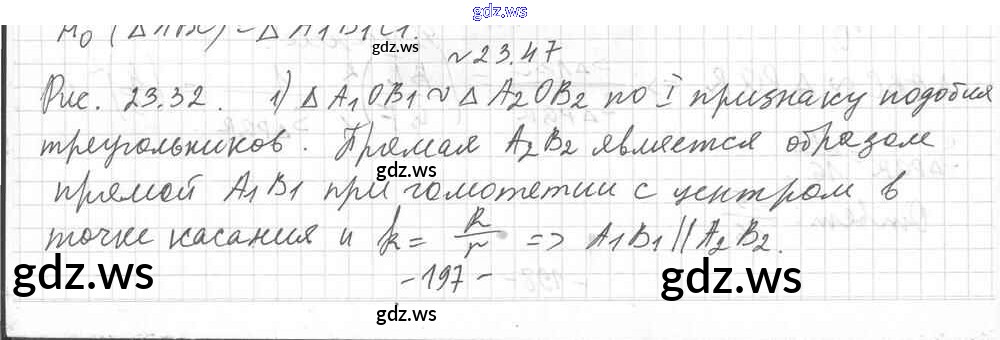 gdz.ws
H₀ (ΔABC) = ΔA₁B₁C₁.
gdz.ws
№ 23.47
Рис. 23.32. 1) Δ A₁OB₁ ~ Δ A₂OB₂ по I признаку подобия
треугольников. Прямая A₂B₂ является образом
прямой A₁B₁ при гомотетии с центром в
точке касания и k = R/r => A₁B₁ || A₂B₂.
gdz.ws
-197-
gdz.ws
gdz.ws